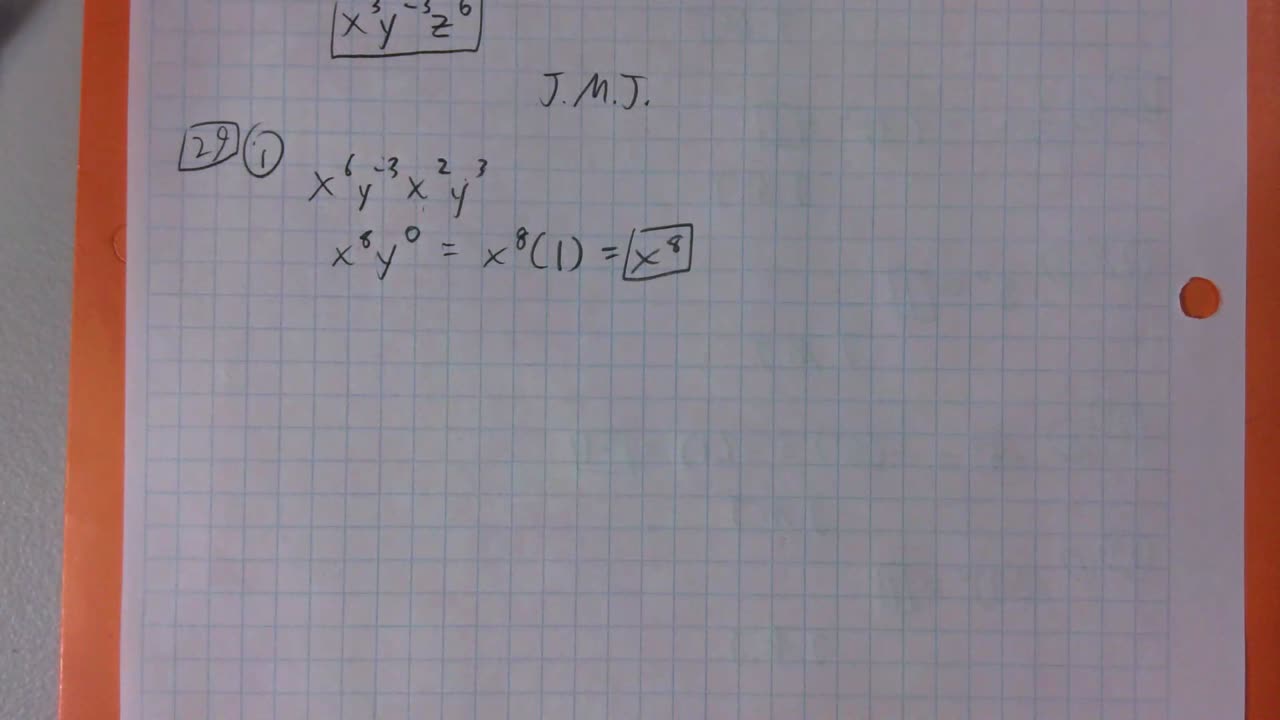 x³y⁻³z⁶
J.M.J.
29 1
x⁶y⁻³x²y³
x⁸y⁰ = x⁸(1) = x⁸